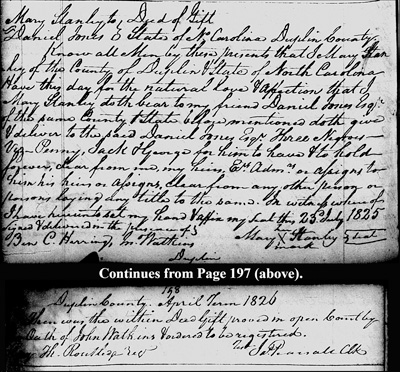 Mary Stanley to, Deed of Gift
Daniel Jones & State of No Carolina Duplin County
Know all Men by these presents that I Mary Stan
ley of the County of Duplin & State of North Carolina
Have this day for the natural love & affection that I
Mary Stanley doth bear to my friend Daniel Jones Esqr
of the same County & State above mentioned doth give
& deliver to the said Daniel Jones Esqr Three Negroes
Viz. Penny, Jack & George for him to have & to hold
forever, clear from me, my heirs, Exrs Admrs or assigns to
him his heirs or assigns, clear from any other person or
persons laying any title to the same. In witness whereof
I have hereunto set my hand & affix my seal this 23d July 1825
Signed & delivered in the presence of
Ben C. Herring, M. Watkins Mary X Stanley seal
mark
Duplin
Continues from Page 197 (above).
198
Duplin County. April Term 1826
Then was the within Deed Gift proved in open Court by
Oath of John Watkins & ordered to be registered.
Thi. Routledge regr Test Js Pearsall Clk